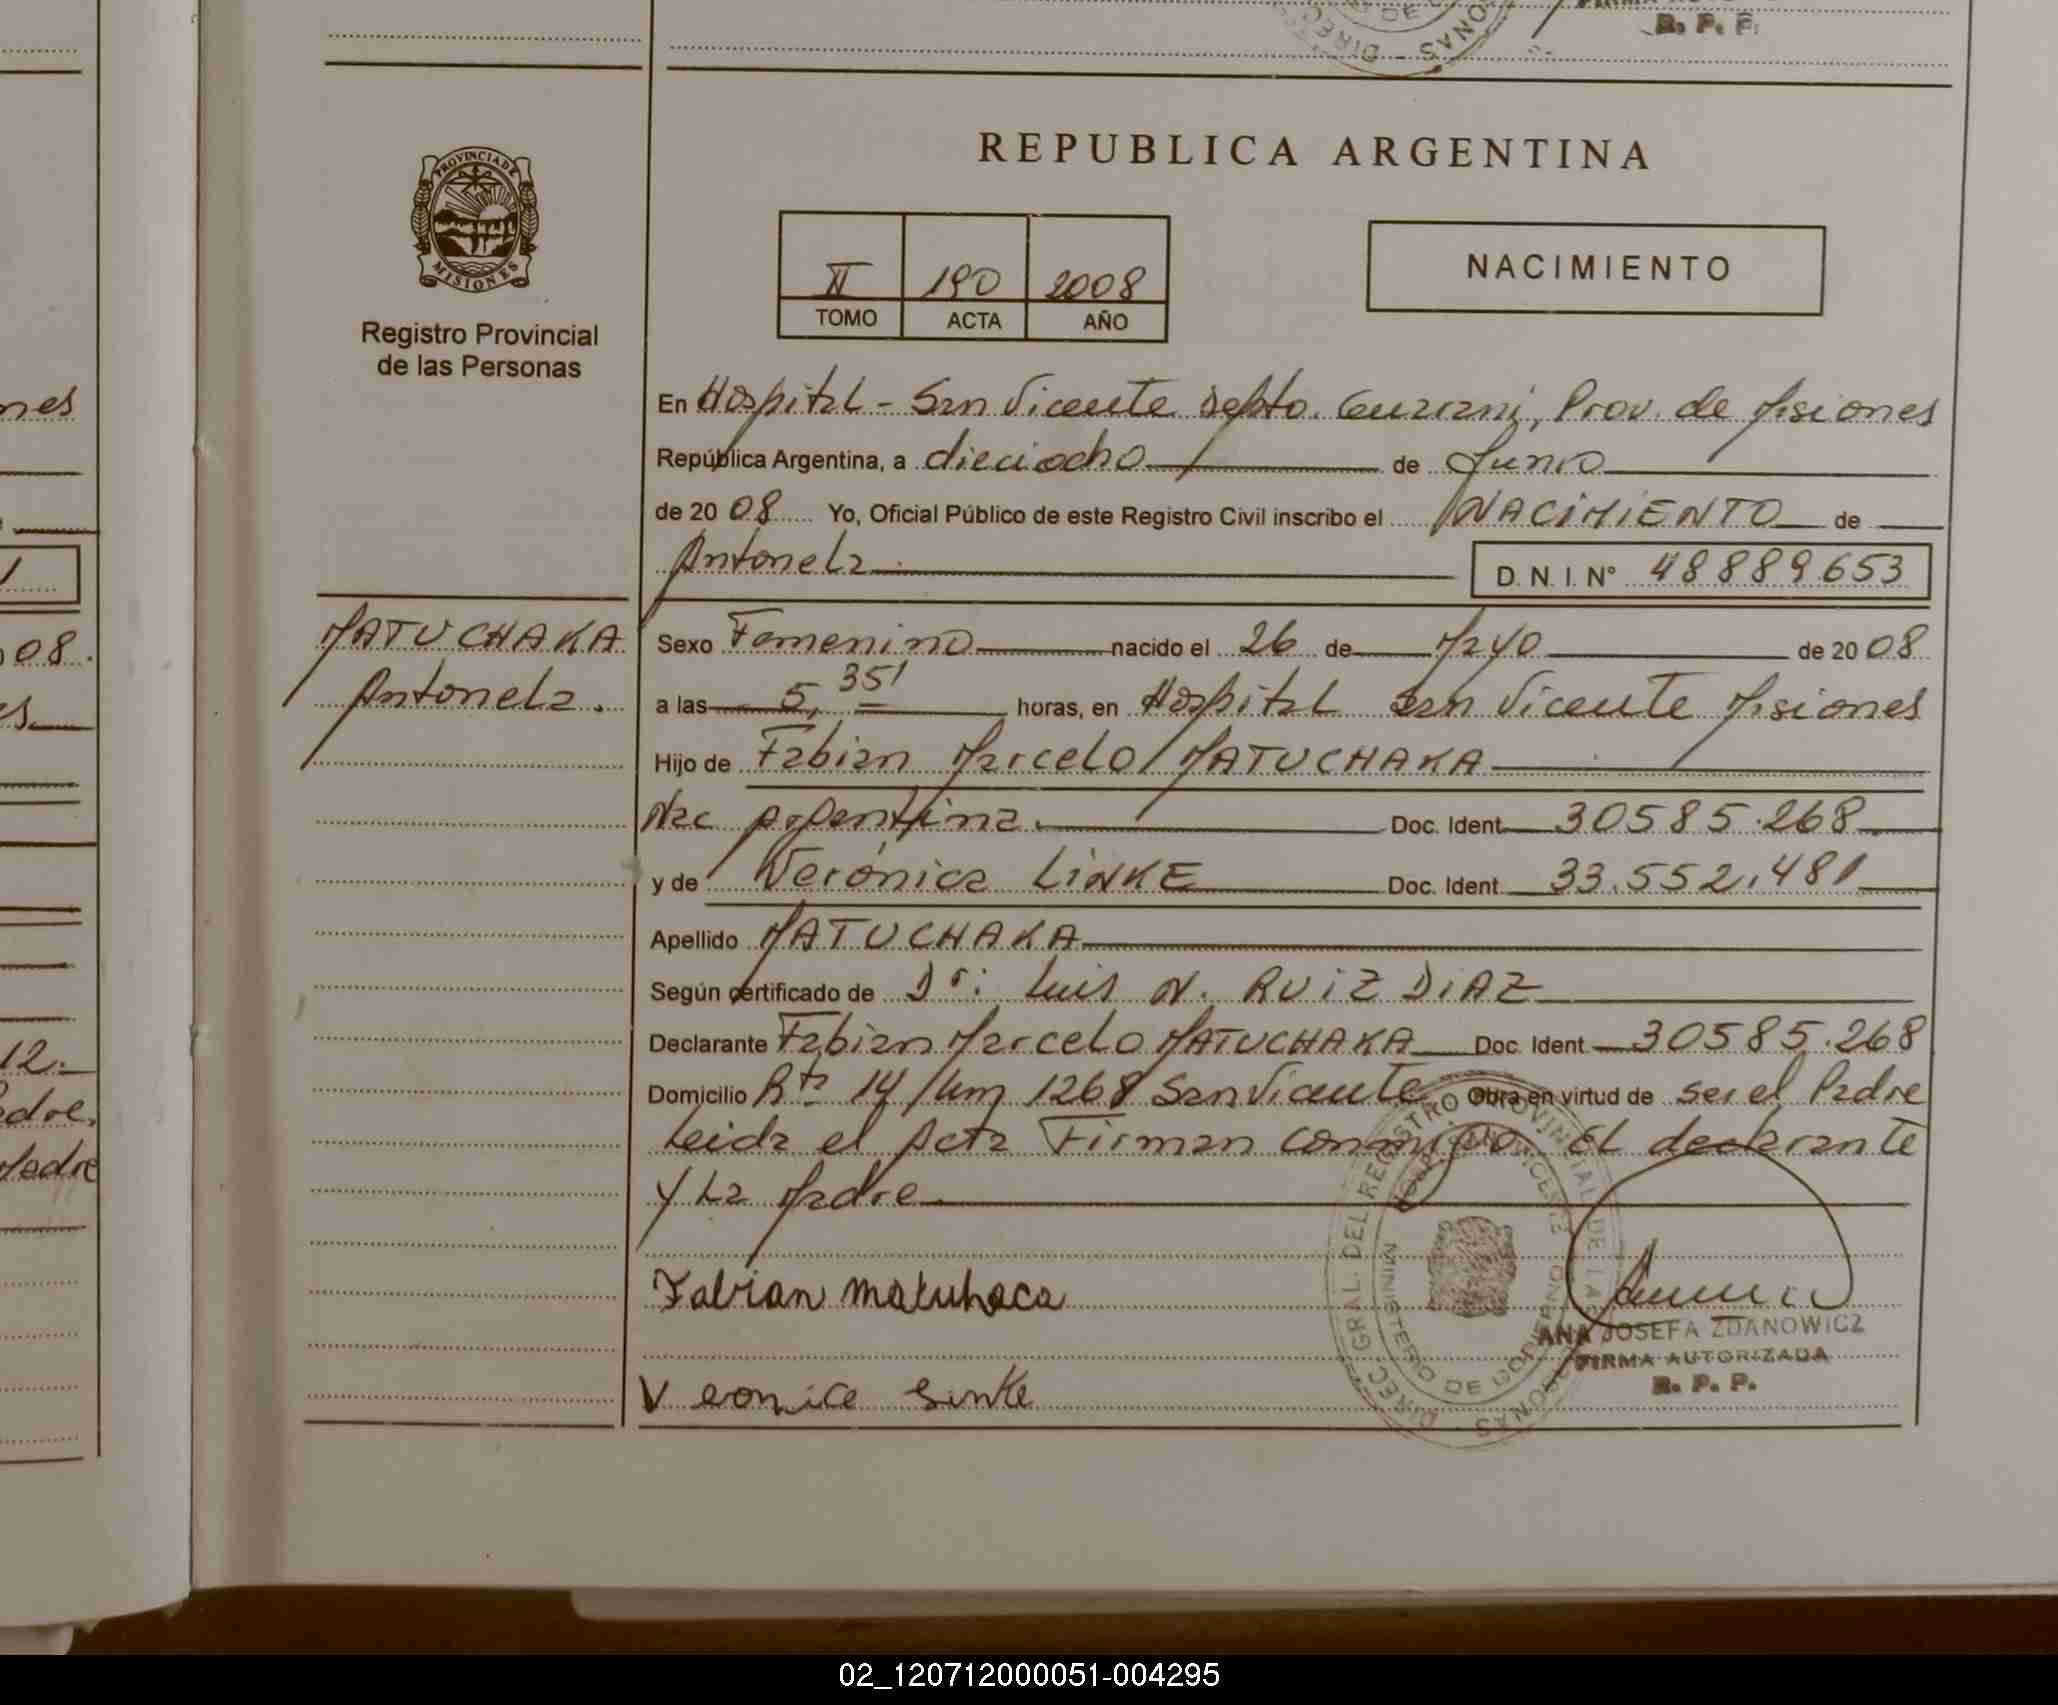 R. P. P.
DIREC
NAS
REPUBLICA ARGENTINA
PROVINCIA DE
MISIONES
Registro Provincial
de las Personas
II 190 2008
TOMO ACTA AÑO
NACIMIENTO
En Hospital - San Vicente Depto. Guarani, Prov. de Misiones
República Argentina, a dieciocho de Junio
de 20 08 Yo, Oficial Público de este Registro Civil inscribo el NACIMIENTO de
Antonela D. N. I. N° 48889653
MATUCHAKA
Antonela.
Sexo Femenino nacido el 26 de Mayo de 20 08
a las 5, 35' horas, en Hospital San Vicente Misiones
Hijo de Fabian Marcelo MATUCHAKA
Nac Argentina. Doc. Ident. 30585.268
y de Verónica LiNKE Doc. Ident. 33.552.481
Apellido MATUCHAKA
Según certificado de Dr: Luis N. RUiZ DiAZ
Declarante Fabian Marcelo MATUCHAKA Doc. Ident. 30585.268
Domicilio Rta 14 Km 1268 San Vicente Obra en virtud de ser el Padre
Leida el Acta Firman conmigo El declarante
y La Madre.
Fabian Matuhaca
Veonice Linke
DIREC. GRAL. DEL REGISTRO PROVINCIAL DE LAS PERSONAS
MINISTERIO DE GOBIERNO
ANA JOSEFA ZDANOWICZ
FIRMA AUTORIZADA
R. P. P.
nes
08.
es
12.
adre,
Madre
02_120712000051-004295